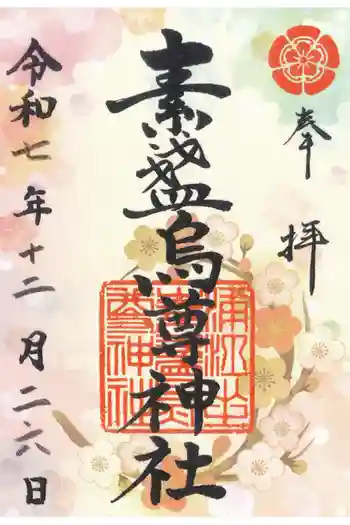 奉拝
素盞烏尊神社
浦江坐
尊神社
令和七年十二月二六日